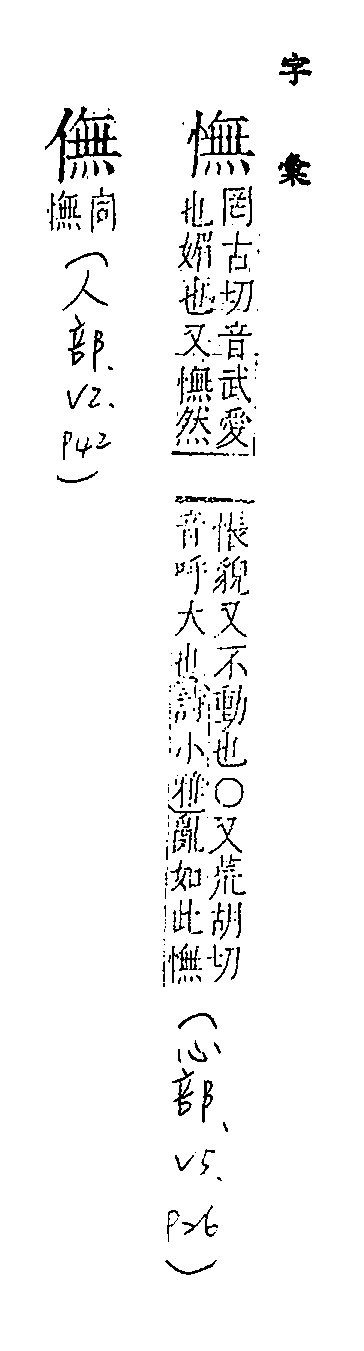 字彙
憮
罔古切音武愛
也媚也又憮然
悵貌又不動也○又荒胡切
音呼大也詩小雅亂如此憮
(心部、V5、P26)
㒇
同
憮
(人部、V2、P42)